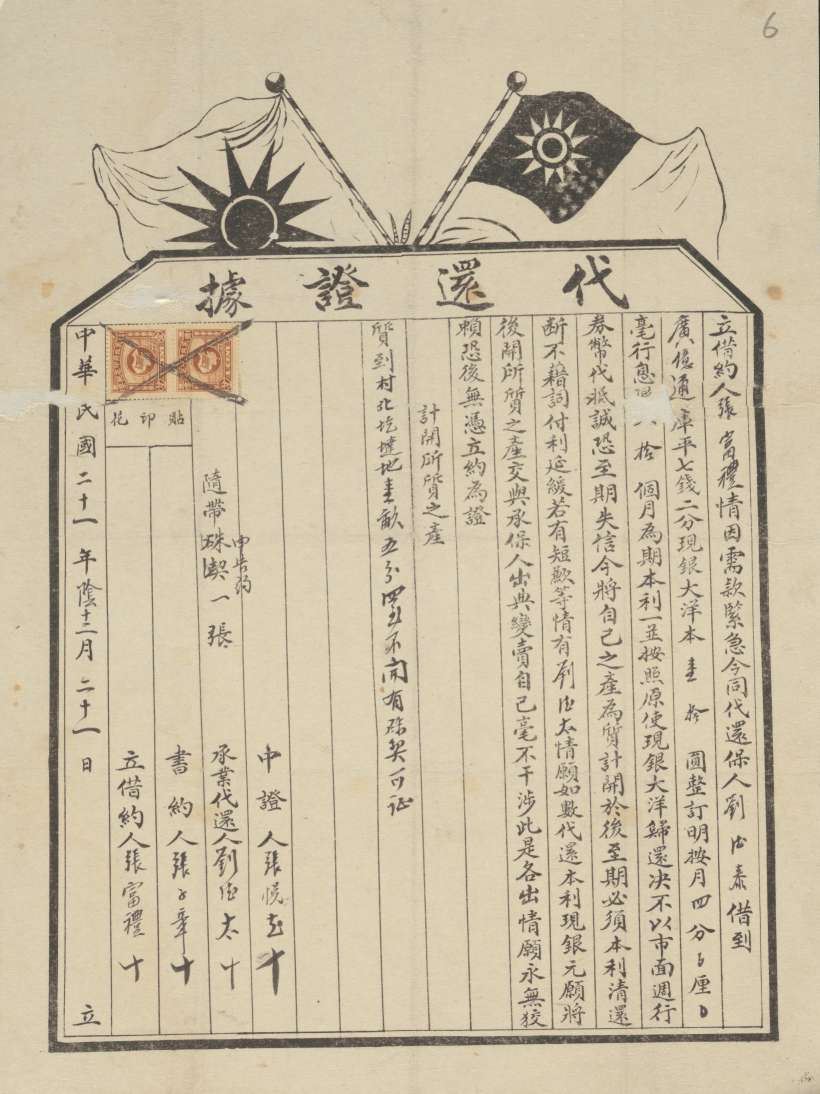 6
代還證據
立借約人張富禮情因需款緊急今同代還保人劉 泰 借到
廣 通庫平七錢二分現銀大洋本 圭 拾 圓整訂明按月四分 厘
毫行息 八拾 個月為期本利一並按照原使現銀大洋歸還决不以市面週行
券幣代抵誠恐至期失信今將自己之產為質計開於後至期必須本利清還
断不藉詞付利延緩若有短歉等情有劉 太情願如數代還本利現銀元願將
後開所質之產交與承保人出典變賣自己毫不干涉此是各出情願永無狡
賴恐後無憑立約為證
計開所質之產
質到村北圪墶地圭畝五分四至不開有硃契可证
中證人張悦 十
隨帶硃契一張
承業代還人劉 太十
書約人張 章十
貼印花
立借約人張富禮十
中華民國二十一年陰十二月二十一日 立